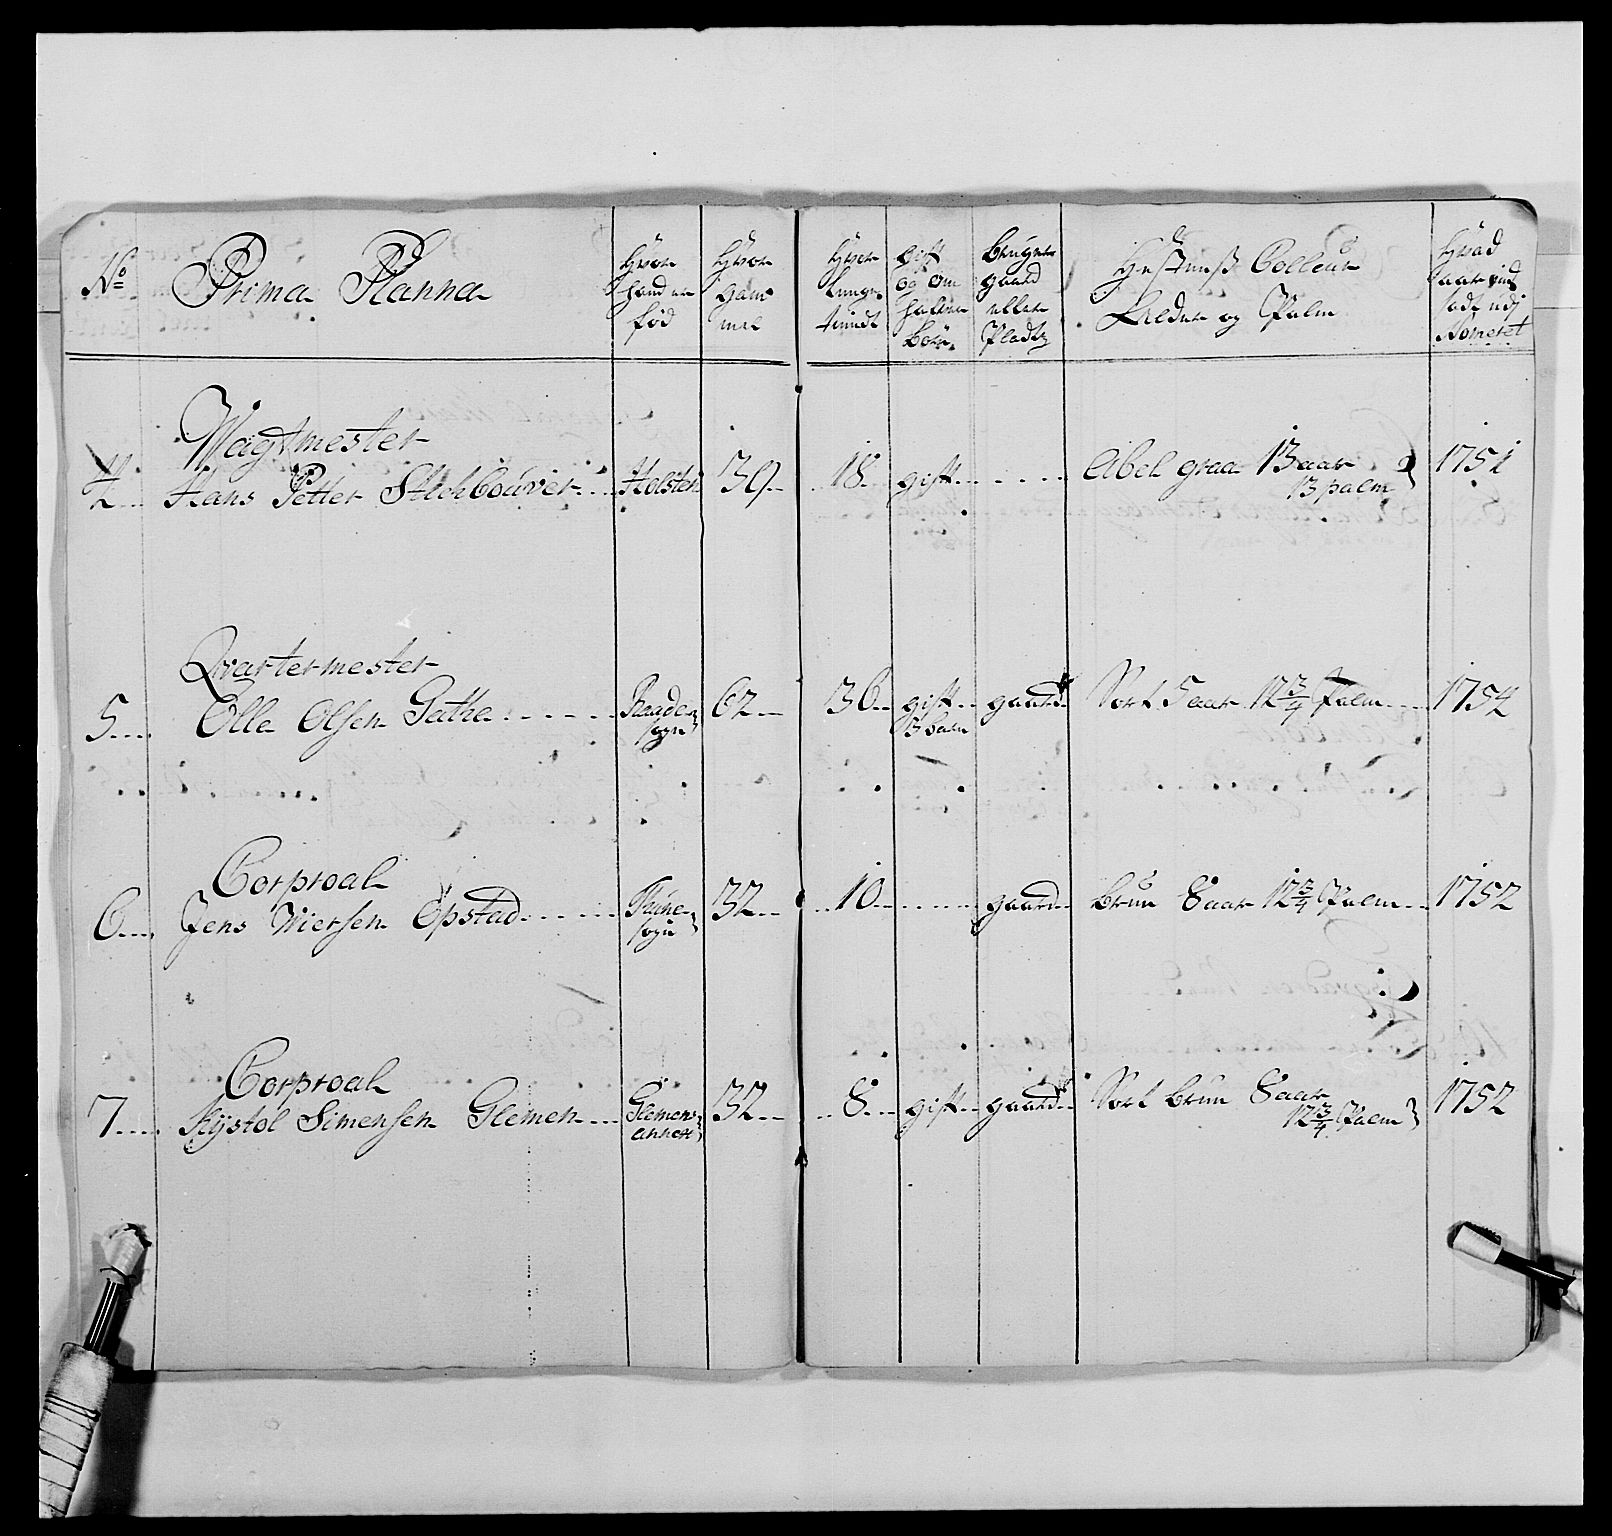 No Prima Planna
Hvor hand er fød
Hvor gam mel
Hvor lenge tiendt
gift og om hafver Børn
bruger gaard eller Pladtz
Hestenß Colleur Alder og Palm
Hvad aar ind sadt udj Nomeret
Wagtmester
4 Hans Petter Holsten 39 18 gift Abel graa 13 aar 13 palm 1751
Qvartermester
5 Olle Olsen Raade sogn 62 36 gift 3 barn gaard Sort 5 aar 12 3/4 Palm 1754
Corproal
6 Jens Niersen Opstad Thune sogn 32 10 gaard brun 8 aar 12 3/4 Palm 1752
Corproal
7 Kystol Simensen Glemen Glemens annex 32 8 gift gaard Sort brun 8 aar 12 3/4 Palm 1752